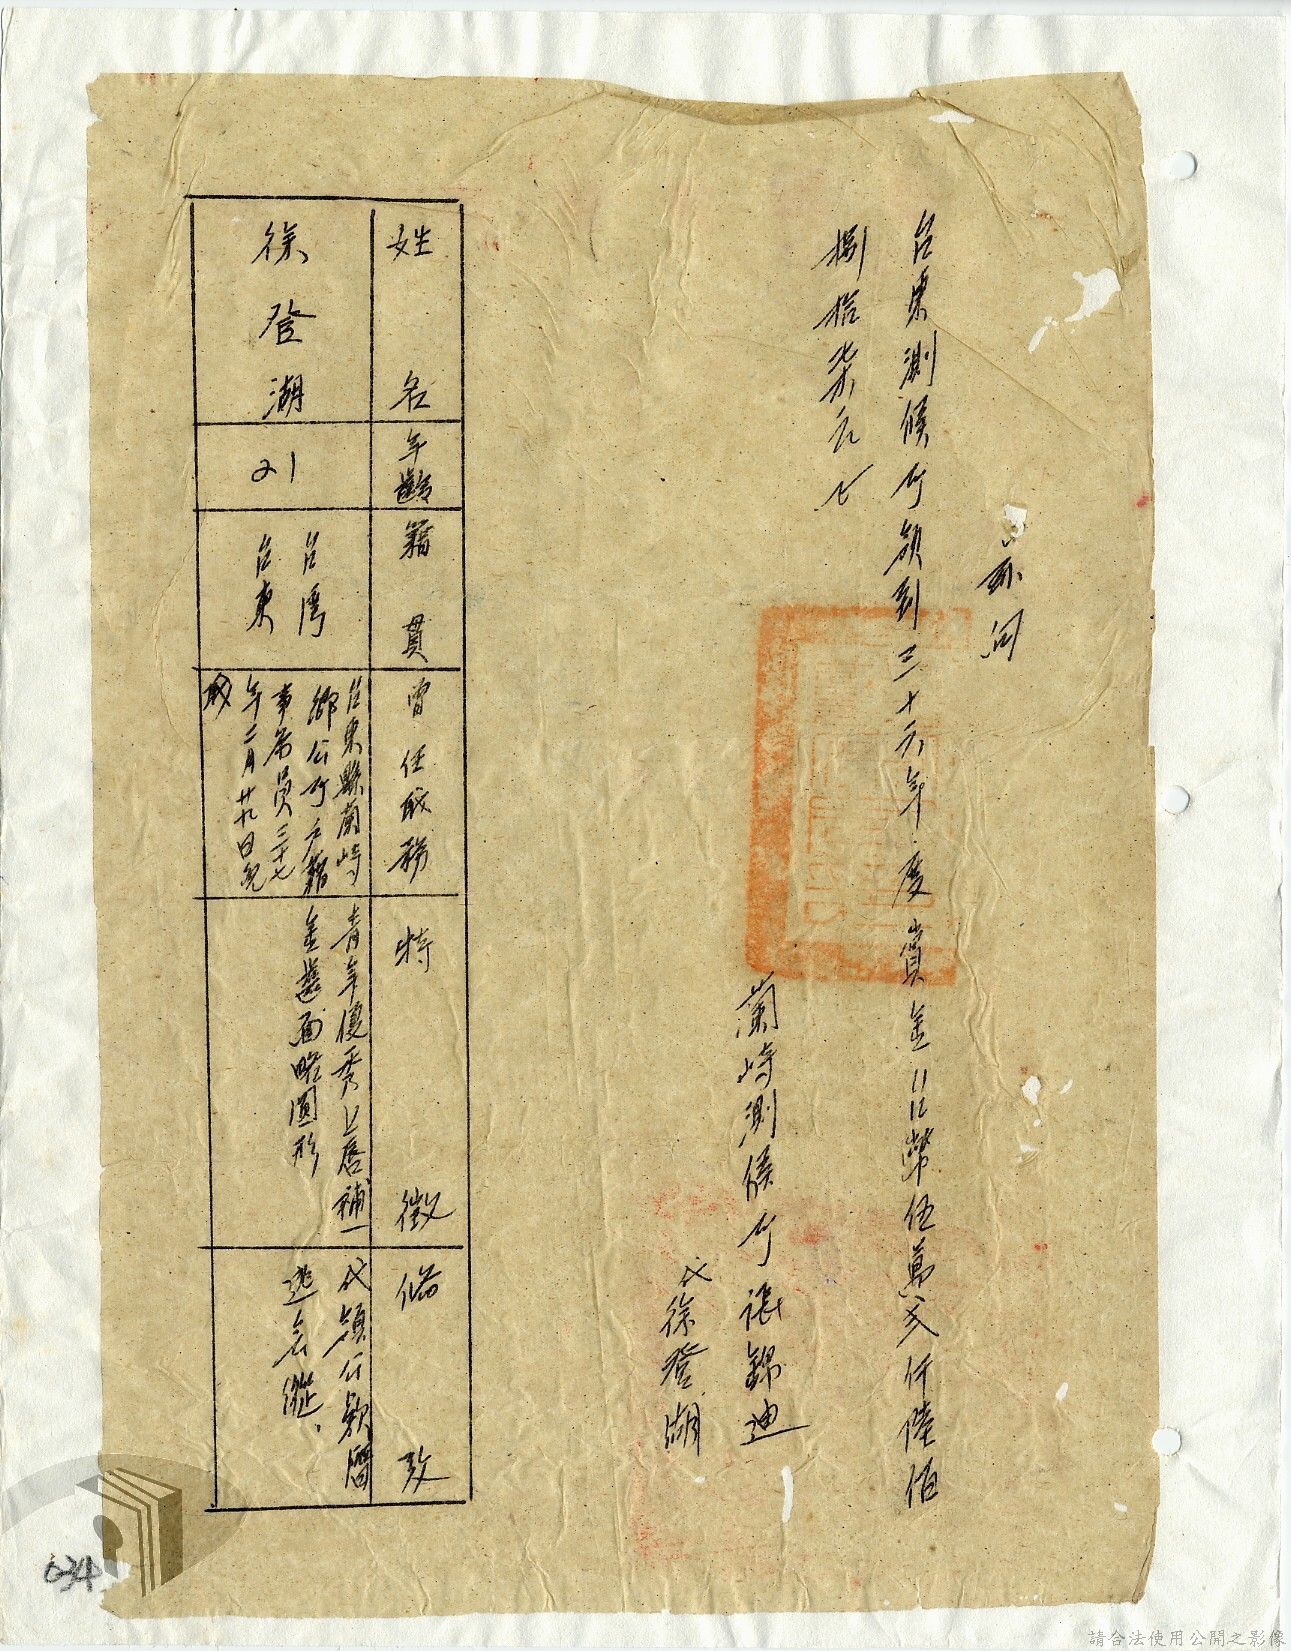 台東測候所領到三十六年度賞金台幣伍萬弍仟陸佰
捌拾柒元正
蘭嶼測候所 張錦迪
代 徐登湖
姓名
年齡
籍貫
曾任職務
特徵
備攷
徐登湖
21
台灣
台東
台東縣蘭嶼
鄉公所戶籍
事務員三十七
年二月廿九日免
職
青年優秀上唇補一
金選面略圓形
代領公款潛
逃無蹤、
634
請合法使用公開之影像